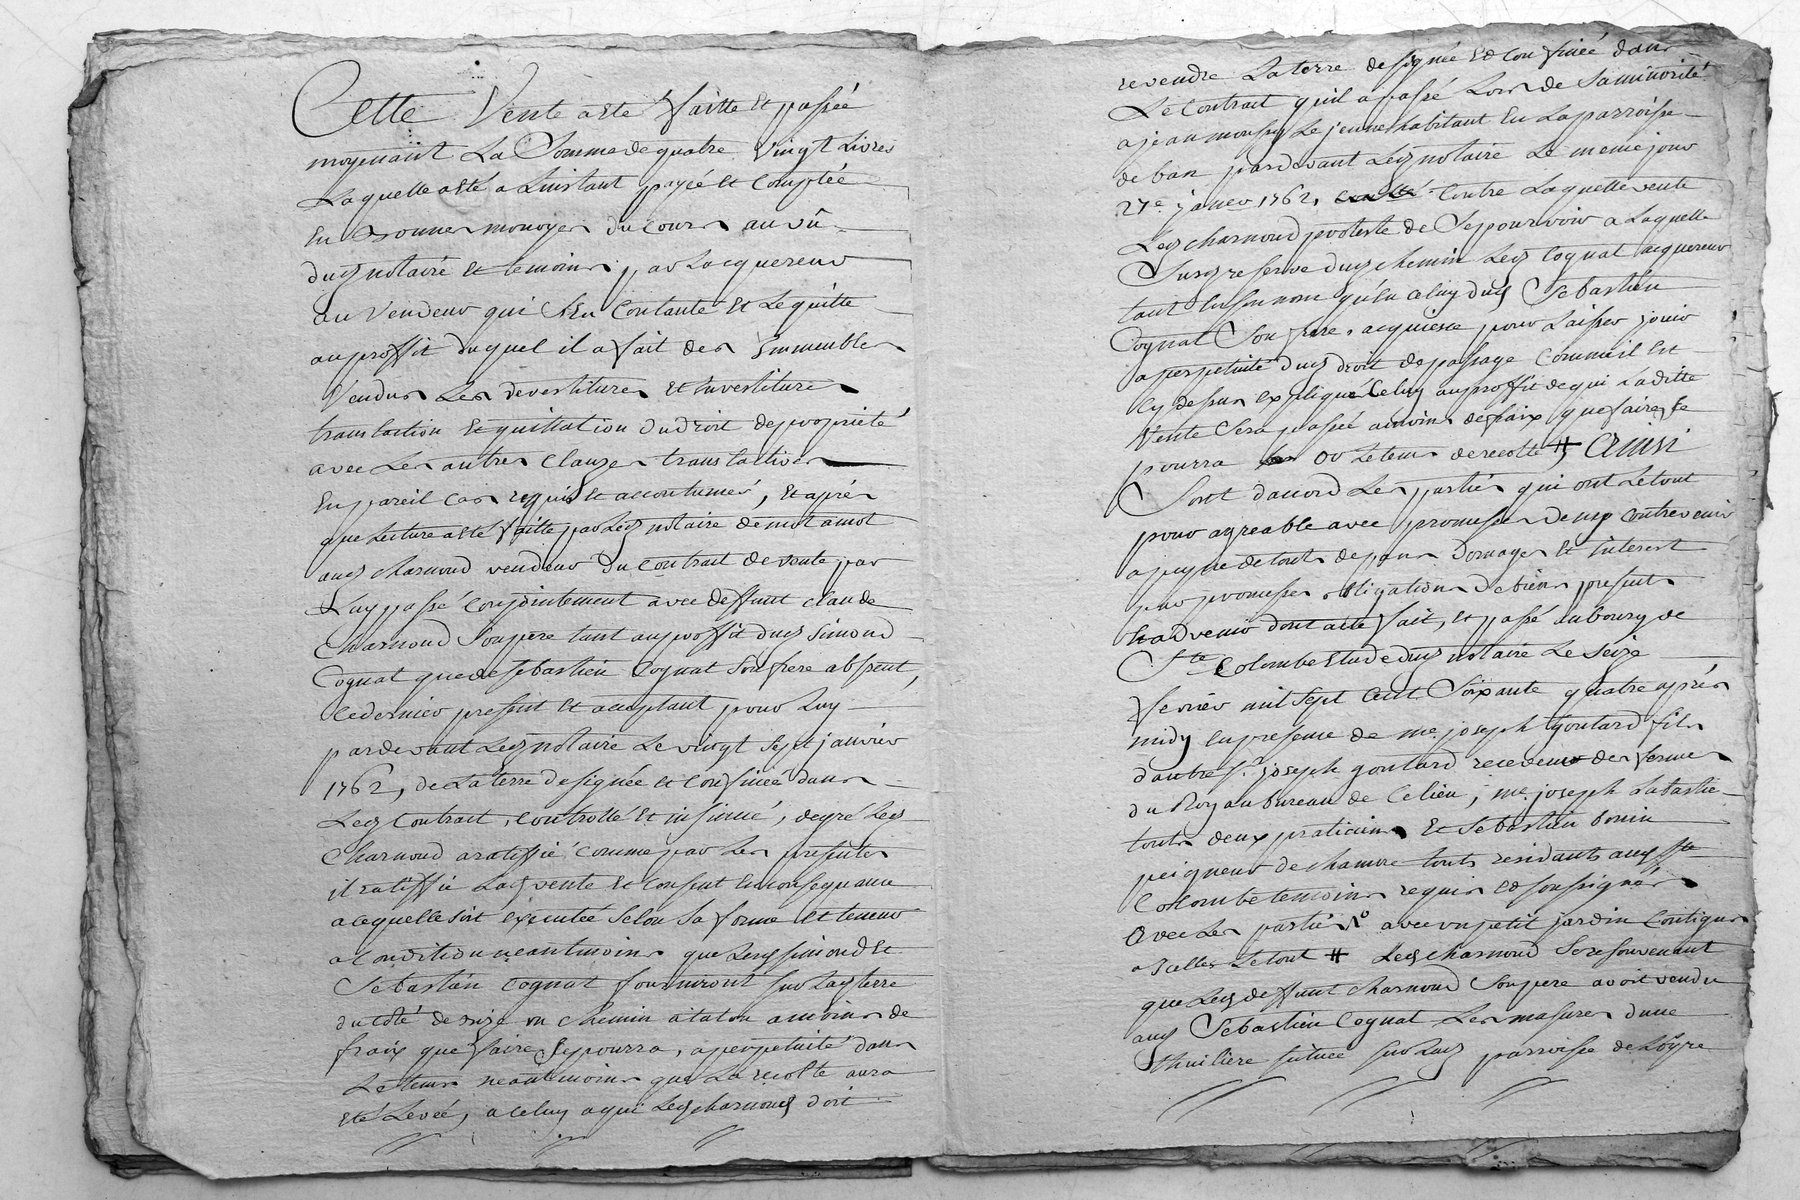 Cette Vente a esté faitte et passée
moyenant La Somme de quatre Vingt Livres
Laquelle a esté a Linstant payée et Comptée
En Bonnes monoyes du Cours au vû
dud notaire et temoins par Lacquereur
au Vendeur qui Sen Contante et Le quitte
au proffit duquel il a fait des Immeubles
Vendus Les devestitures et Investitures
translaction et quittation du droit de proprieté
avec Les autres Clauzes translactives
En pareil Cas requis et accoutumés, et après
que Lecture a esté faitte par Led notaire de mot amot
aud charnoud vendeur du Contrat de vente par
Luy passé Conjointement avec deffunt claude
Charnoud Son pere tant au proffit dud Simond
Cognat que de Sebastien Cognat Son frere absent,
Ce dernier present et acceptant pour Luy
pardevant Led notaire Le vingt Sept janvier
1762, de La terre designée et Confinée dans
Led Contract, Controllé et insinué, de gré Led
Charnoud a ratiffié comme par Les presentes
il ratiffie Lad vente et Consent En consequance
a cequelle soit Exécutée Selon Sa forme et teneur
a Condition neantmoins que Lesd Simond et
Sebastien Cognat fourniront Sur Lad terre
du côté de bize un chemin a talon a moins de
fraix que faire Se pourra, a perpetuité dans
Le tems neantmoins que La recolte aura
Eté Levée, a Celuy a qui Led charnoud doit
revendre La terre designée et Confinée dans
Le Contrat quil a passé Lors de Sa minorité
a jean moussy Le jeune habitant En La parroisse
de ban pardevant Led notaire Le meme jour
27e janer 1762, Contre Laquelle vente
Led charnoud proteste de Se pourvoir a Laquelle
Susd reserve dud chemin Led Cognat acquereur
tant En son nom quen celuy dud Sebastien
Cognat Son frere, acquiesce pour Laisser jouir
a perpetuité dud droit de passage Comme il Est
Cy dessus Expliqué Celuy au proffit de qui Laditte
Vente Sera passée a moins de fraix que faire Se
pourra ou Le tems de recolte # Ainsi
Sont dacord Les parties qui ont Le tout
pour agreable avec promesses de ny Contrevenir
a peyne de touts depans Domages Et Interest
par promesses obligations de biens presents
Et advenir dont acte fait, et passé au bourg de
Ste Colombe Etude dud notaire Le Seize
fevrier mil Sept Cent Soixante quatre après
midy En presence de me. joseph Goutard fils
dautre sr. joseph goutard receveur des fermes
du Roy au bureau de Ce lieu, me joseph Labastie
touts deux praticiens Et Sebastien bonin
peigneur de chanvre touts residants aud Ste
Colombe temoins requis et soussignés
Avec Les parties avec un petit jardin Contigu
a Icelles Le tout # Led charnoud Se resouvenant
que Led deffunt charnoud Son pere avoit vendu
aud Sebastien Cognat Les masures dune
thuiliere Située Sur Lad parroisse de Loyre